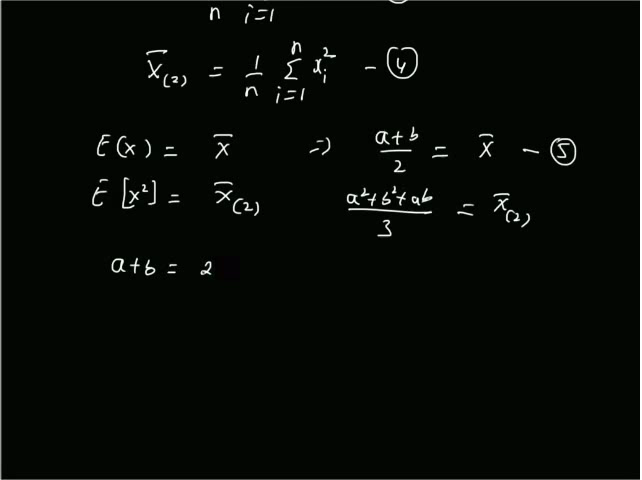 n i=1
X̄(2) = 1/n n∑i=1 xi² – ④
E(x) = x̄ ⇒ a+b/2 = x̄ – ⑤
E[x²] = x̄(2) a²+b²+ab/3 = x̄(2)
a+b = 2